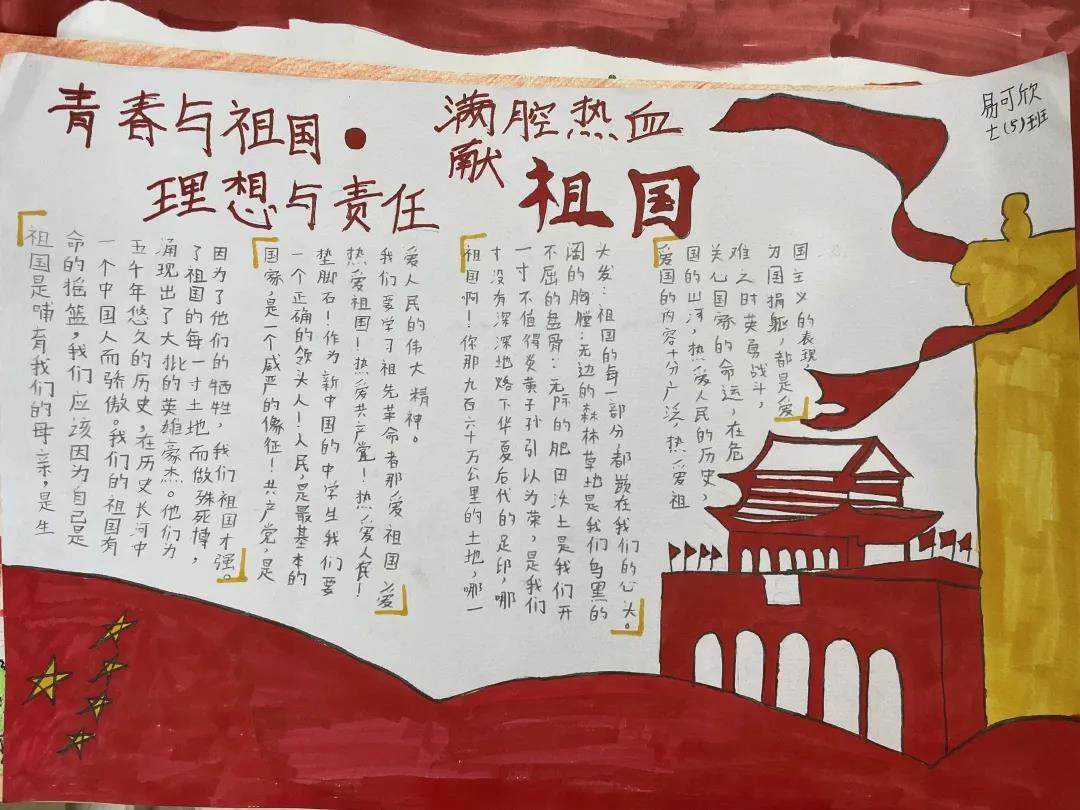 青春与祖国·
理想与责任
满腔热血
献
祖国
易可欣
七(5)班
祖国是哺育我们的母亲，是生
命的摇篮，我们应该因为自己是
一个中国人而骄傲。我们的祖国有
五千年悠久的历史，在历史长河中
涌现出了大批的英雄豪杰。他们为
了祖国的每一寸土地而做殊死搏，
因为了他们的牺牲，我们祖国才强。
国家，是一个威严的像征！共产党，是
一个正确的领头人！人民，是最基本的
垫脚石！作为新中国的中学生我们要
热爱祖国！热爱共产党！热爱人民！
我们要学习祖先革命者那爱祖国爱
爱人民的伟大精神。
祖国啊！你那九百六十万公里的土地，哪一
寸没有深深地烙下华夏后代的足印，哪
一寸不值得炎黄子孙引以为荣，是我们
不屈的盘骨：无际的肥田沃土是我们开
阔的胸膛：无边的森林草地是我们乌黑的
大发：祖国的每一部分都嵌在我们的心头。
爱国的内容十分广泛，热爱祖
国的山河，热爱人民的历史，
关心国家的命运，在危
难之时英勇战斗，
为国捐躯，都是爱
国主义的表现。